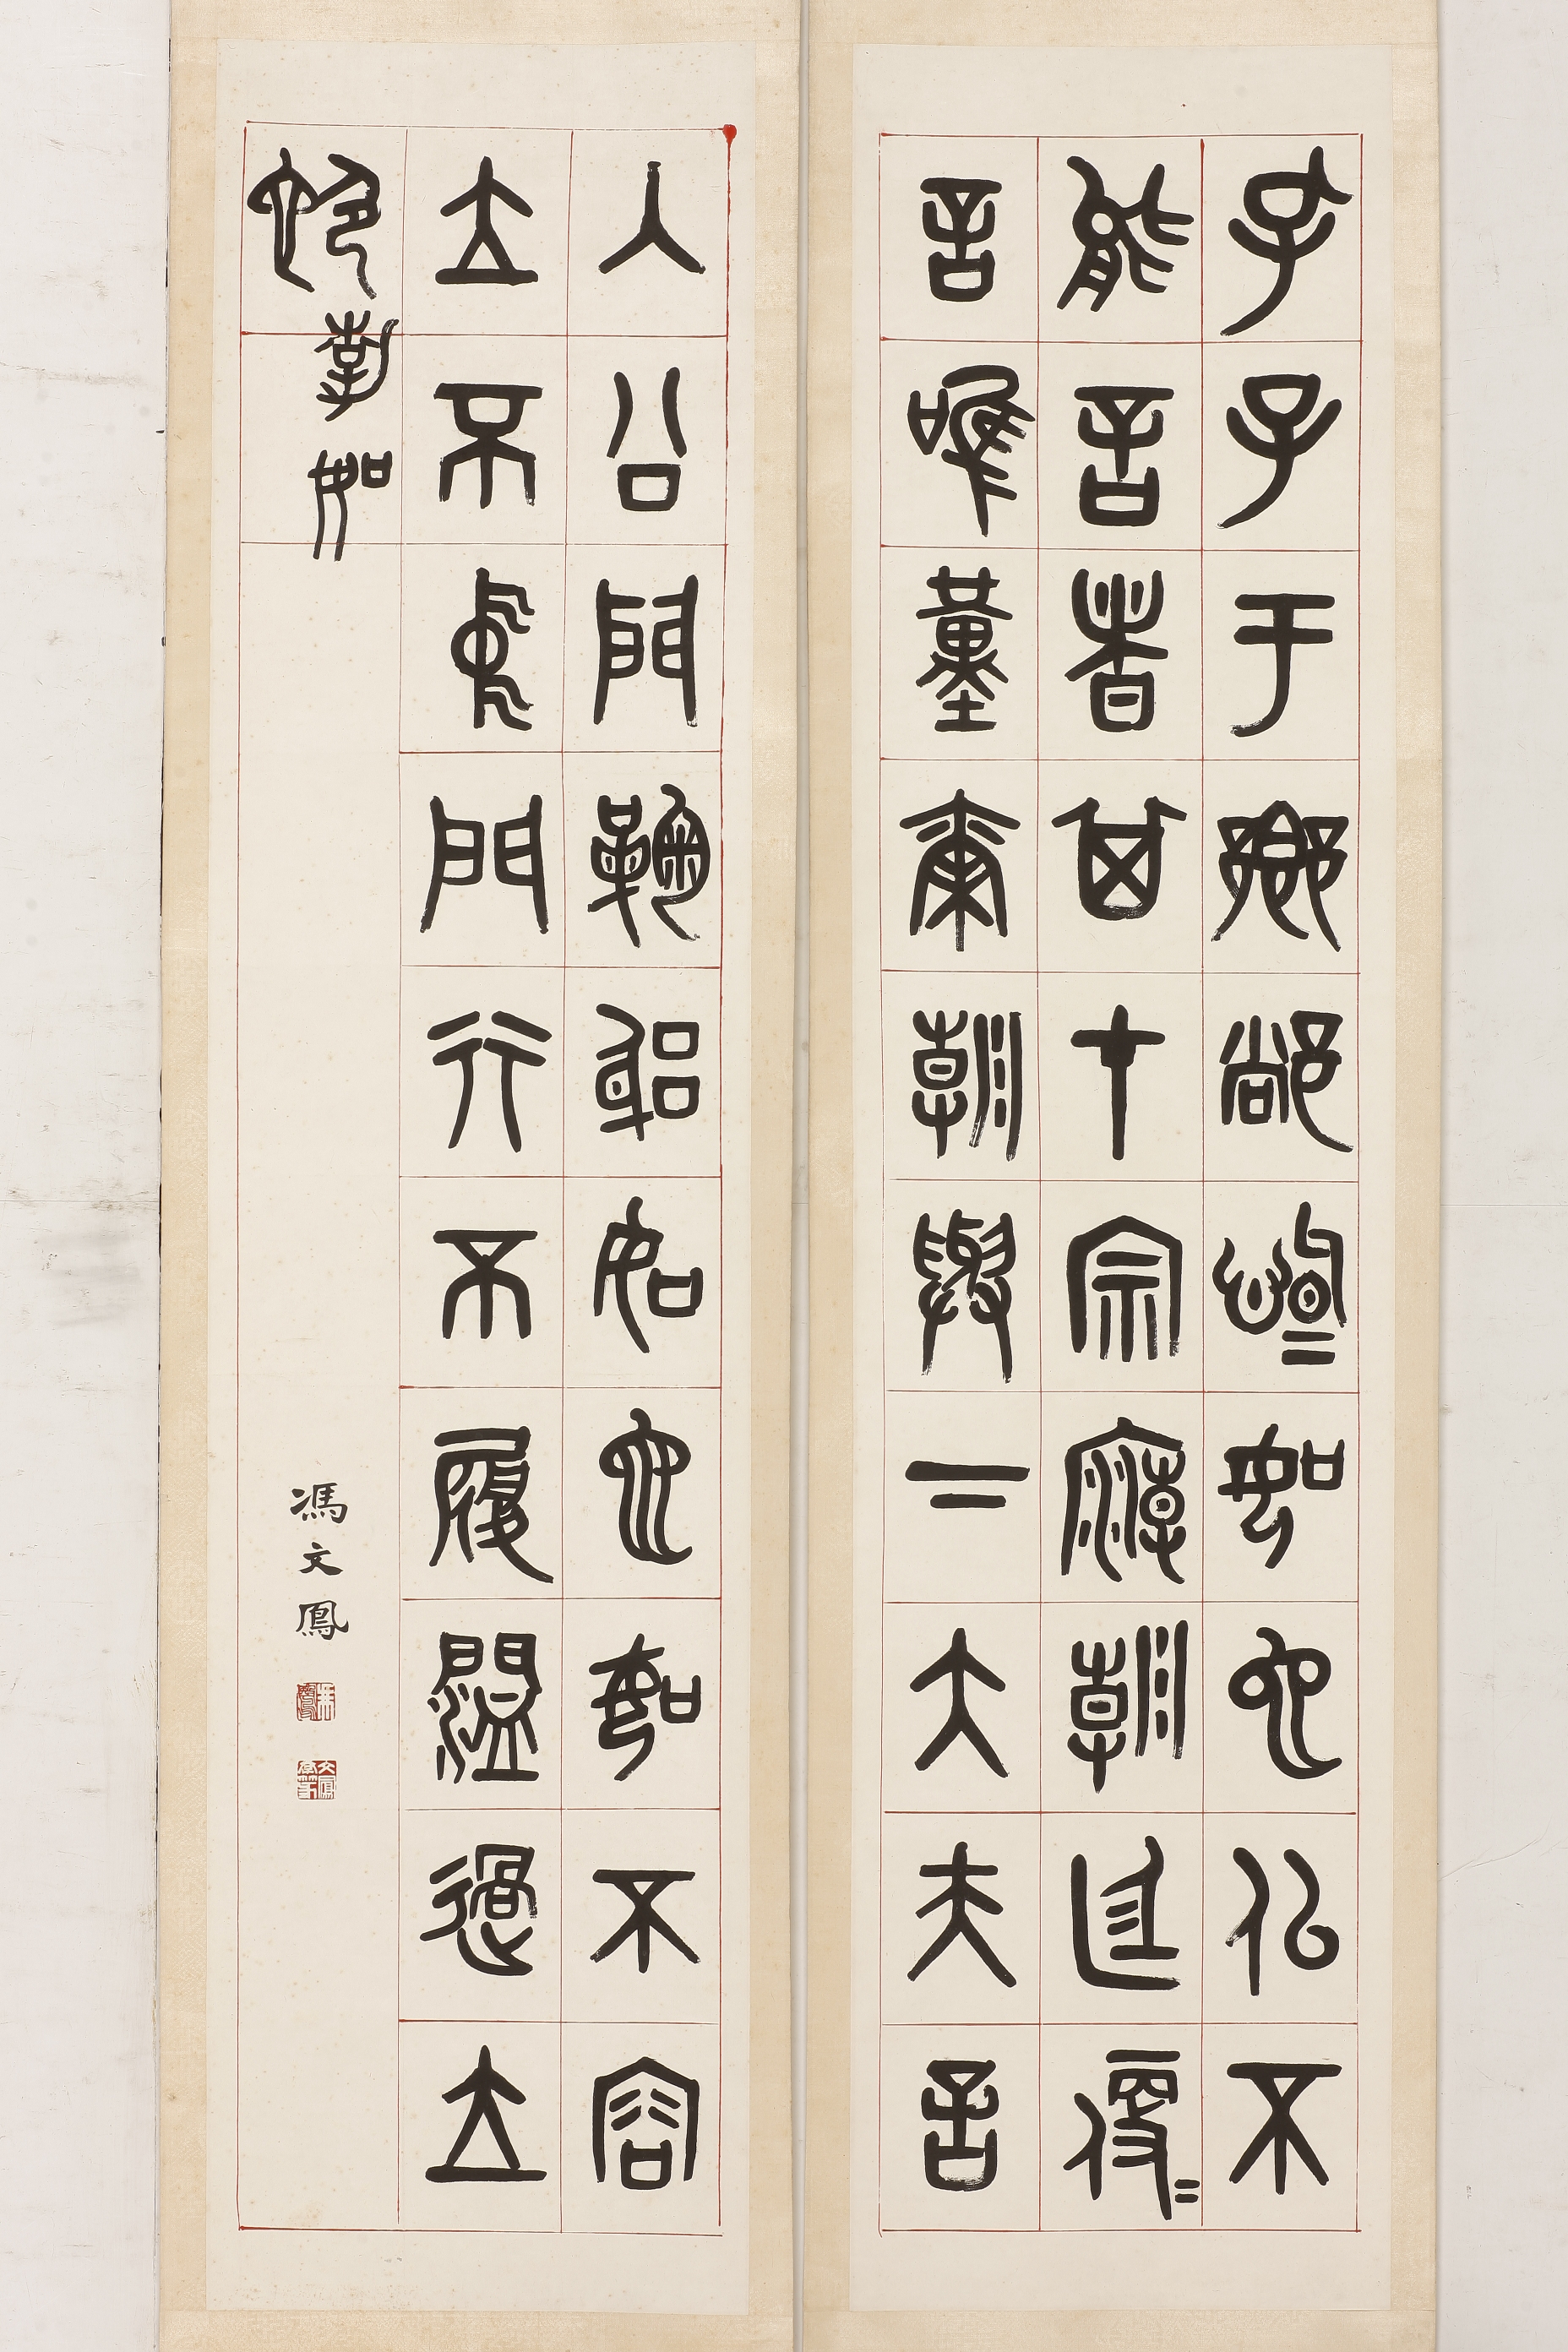 孔子于鄉黨恂〻如也似不
能言者其在宗廟朝廷便〻
言唯謹爾朝與下大夫言
入公門鞠躬如也如不容
立不中門行不履閾過位
色勃如也
馮文鳳